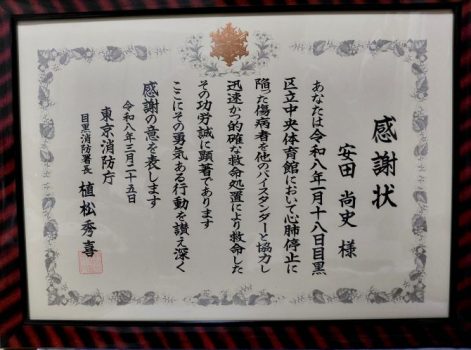 感謝状
安田 尚史 様
あなたは令和八年一月十八日目黒
区立中央体育館において心肺停止に
陥った傷病者を他のバイスタンダーと協力し
迅速かつ的確な救命処置により救命した
その功労誠に顕著であります
ここにその勇気ある行動を讃え深く
感謝の意を表します
令和八年三月二十五日
東京消防庁
目黒消防署長 植松秀喜